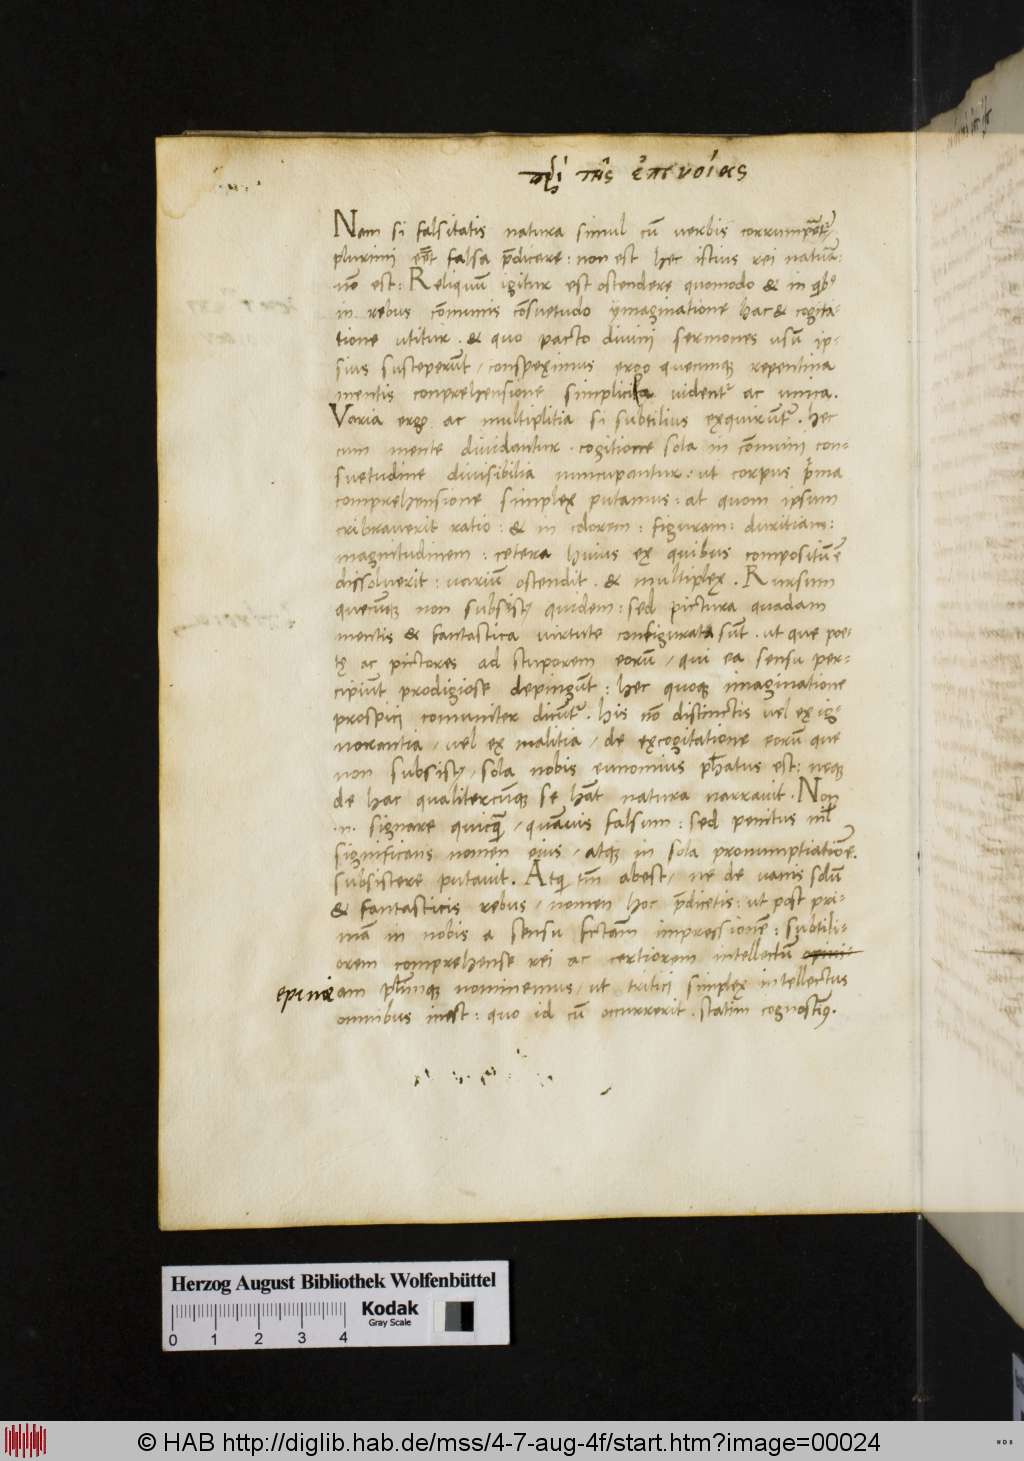 πε̣ρὶ τῆς ἐπινοίας
Nam si falsitatis natura simul cũ verbis corrumpẽt᷑ /
plurimi eẽt falsa p̃dicere : non est hec istius rei natura᷑ :
nõ est : Reliquũ igitur est ostendere quomodo & in qͥbꝰ
in rebus cõmunis cõsuetudo ymaginatione hac & cogita-
tione utitur . & quo pacto divini sermones usũ ip-
sius susceperũt / conspeximus ergo quecumqꝫ repentina
mentis conprehensione simplicia videnť ac unica .
Varia ergo ac multiplitia si subtilius exquirũť . hec
cum mente dividantur . cogitione sola in cõmuni con-
suetudine divisibilia nuncupantur . ut corpus p̃ma
comprehensione simplex putamus : at quom ipsum
cribraverit ratio : & in colorem : figuram : duritiam :
magnitudinem : cetera huius ex quibus compositũ ẽ
dissolverit : variũ ostendit . & multiplex . Rursum
quecũqꝫ non subsistũt quidem : sed pictura quadam
mentis & fantastica virtute configurata sũt . ut que poe-
tę ac pictores ad stuporem eorũ / qui ea sensu per-
cipiũt prodigiose depingũt : hec quoqꝫ imaginatione
prospici comuniter dicũť . his nõ distinctis vel ex ig-
norantia / vel ex malitia / de excogitatione eorũ que
non subsistũt / sola nobis eunomius ph̃atus est : neqꝫ
de hac qualitercũqꝫ se hãt natura narravit . Non
.n. signare quicq̃ / quãvis falsum : sed penitus nil̃
significans nomen eius / atqꝫ in sola pronumptiatiõe .
subsistere putavit . Atqͥ tm̃ abest / ne de vanis sõlũ
& fantasticis rebus / nomen hoc p̃dicetis : ut post pri-
mã in nobis a sensu fctam impressionẽ : subtili-
orem comprehense rei ac certiorem intellectũ
epinoe am pl̃umqꝫ nominemus / ut tritici simplex intellectus
omnibus inest : quo id cũ occurrerit . statim cognoscimꝰ .
Herzog August Bibliothek Wolfenbüttel
Kodak
Gray Scale
0 1 2 3 4
© HAB http://diglib.hab.de/mss/4-7-aug-4f/start.htm?image=00024